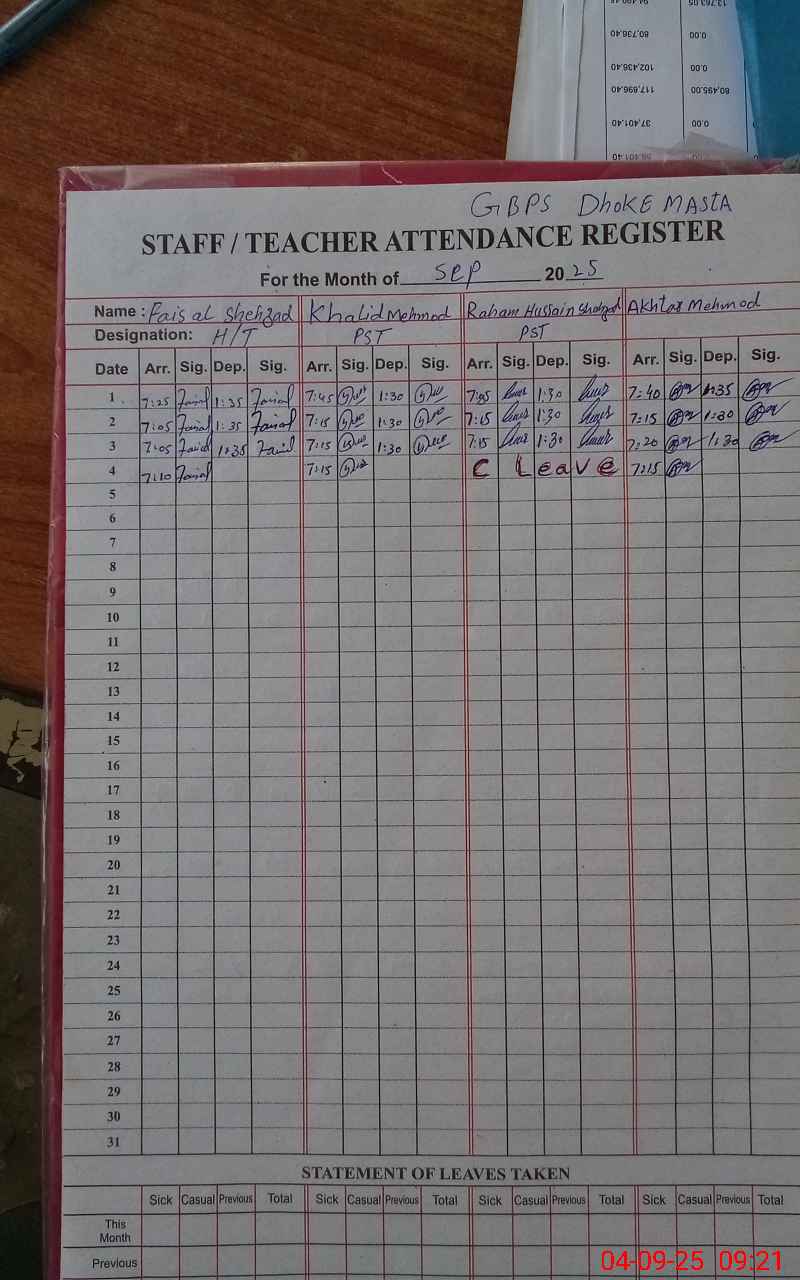 GBPS DHOKE MASTA
STAFF / TEACHER ATTENDANCE REGISTER
For the Month of Sep 2025
Name : Faisal Shehzad Khalid Mehmod Raham Hussain Shahzad Akhtar Mehmod
Designation: H/T PST PST
Date Arr. Sig. Dep. Sig. Arr. Sig. Dep. Sig. Arr. Sig. Dep. Sig. Arr. Sig. Dep. Sig.
1 7:25 Faisal 1:35 Faisal 7:45 1:30 1:30 7:40 1:35
2 7:05 Faisal 1:35 Faisal 7:15 1:30 7:15 1:30 7:15 1:30
3 7:05 Faisal 1:35 Faisal 7:15 1:30 7:15 1:30 7:20 1:30
4 7:10 Faisal 7:15 C Leave 7:15
5
6
7
8
9
10
11
12
13
14
15
16
17
18
19
20
21
22
23
24
25
26
27
28
29
30
31
STATEMENT OF LEAVES TAKEN
Sick Casual Previous Total Sick Casual Previous Total Sick Casual Previous Total Sick Casual Previous Total
This
Month
Previous
04-09-25 09:21